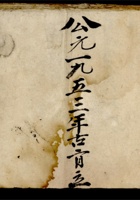 公元一九五三年古二月立